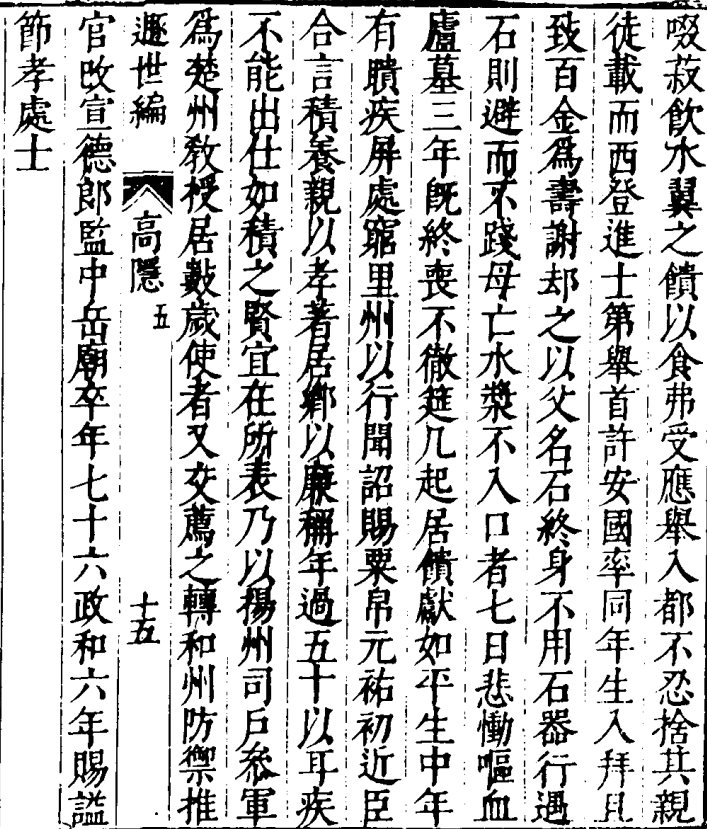 啜菽飲水翼之饋以食弗受應舉入都不忍捨其親
徒載而西登進士第舉首許安國率同年生入拜且
致百金爲壽謝却之以父名石終身不用石器行遇
石則避而不踐母亡水漿不入口者七日悲慟嘔血
廬墓三年旣終喪不徹筵几起居饋獻如平生中年
有聵疾屏處窮里州以行聞詔賜粟帛元祐初近臣
合言積養親以孝著居鄉以廉稱年過五十以耳疾
不能出仕如積之賢宜在所表乃以揚州司戶叅軍
爲楚州敎授居數歲使者又交薦之轉和州防禦推
遯世編 高隱 五 十五
官改宣德郎監中岳廟卒年七十六政和六年賜謚
節孝處士